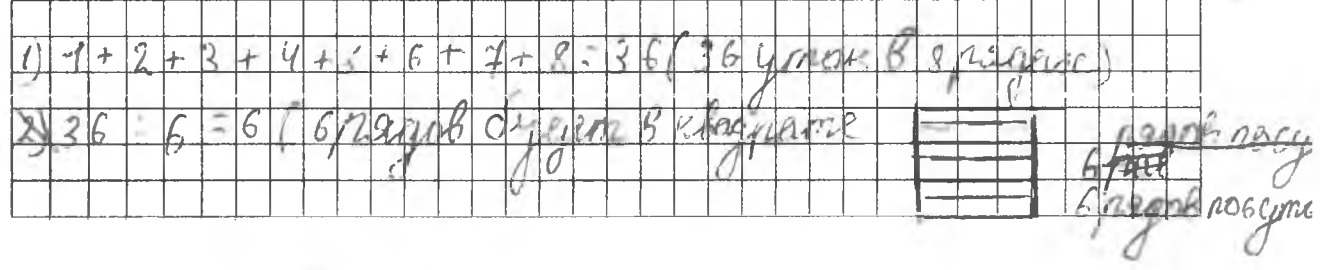 1) 1+2+3+4+5+6+7+8=36(36 уток в 8 рядах)
2) 36:6=6(6 рядов будет в квадрате
6 рядов по 6 уток